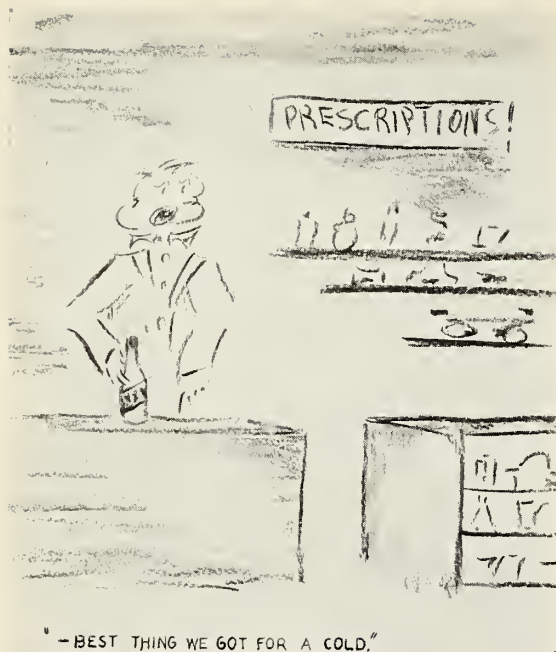 PRESCRIPTIONS!
"—BEST THING WE GOT FOR A COLD."